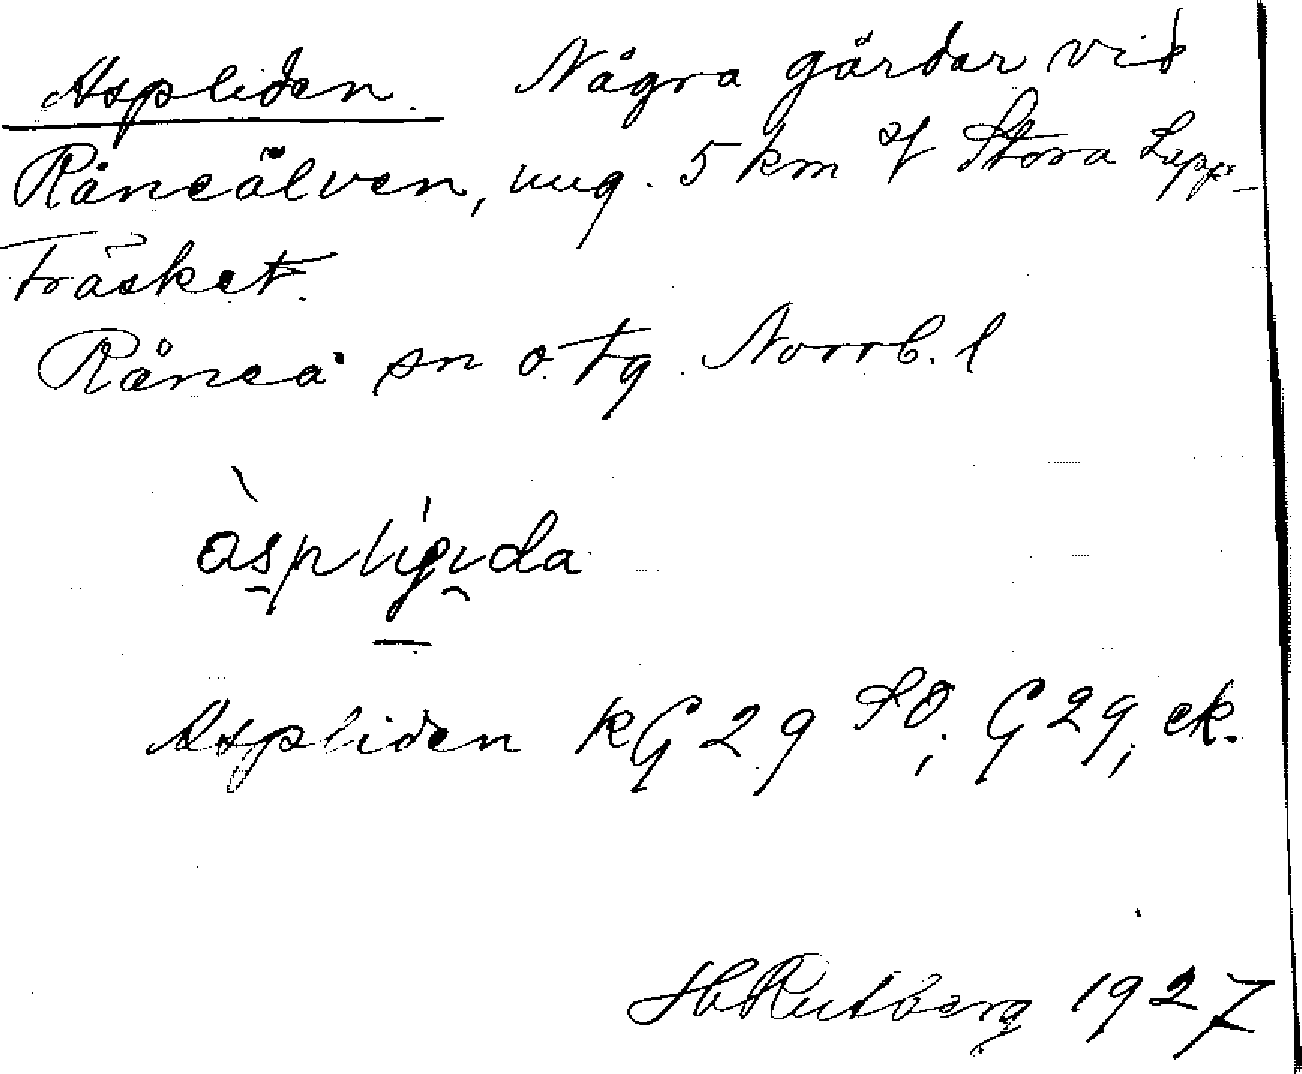 Aspliden. Några gårdar vid
Råneälven, ung. 5 km Stora Lapp-
träsket.
Råneå sn o. tg. Norrb. l
Aspliden KG 29 SO; G 29, ek.
H Rutberg 1927